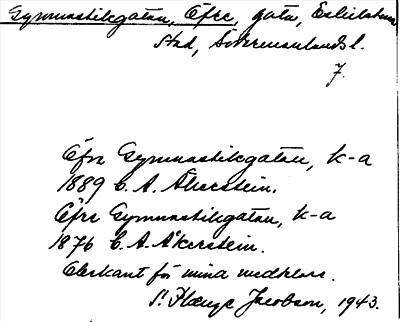 Gymnastikgatan, Öfre, gata, Eskilstuna
stad, Södermanlands l.
7.
Öfra Gymnastikgatan, k-a
1889 C. A. Åkerstein.
Öfre Gymnastikgatan, k-a
1876 C. A. Åkerstein.
Obekant för mina meddelare.
S. Hauge Jacobson, 1943.